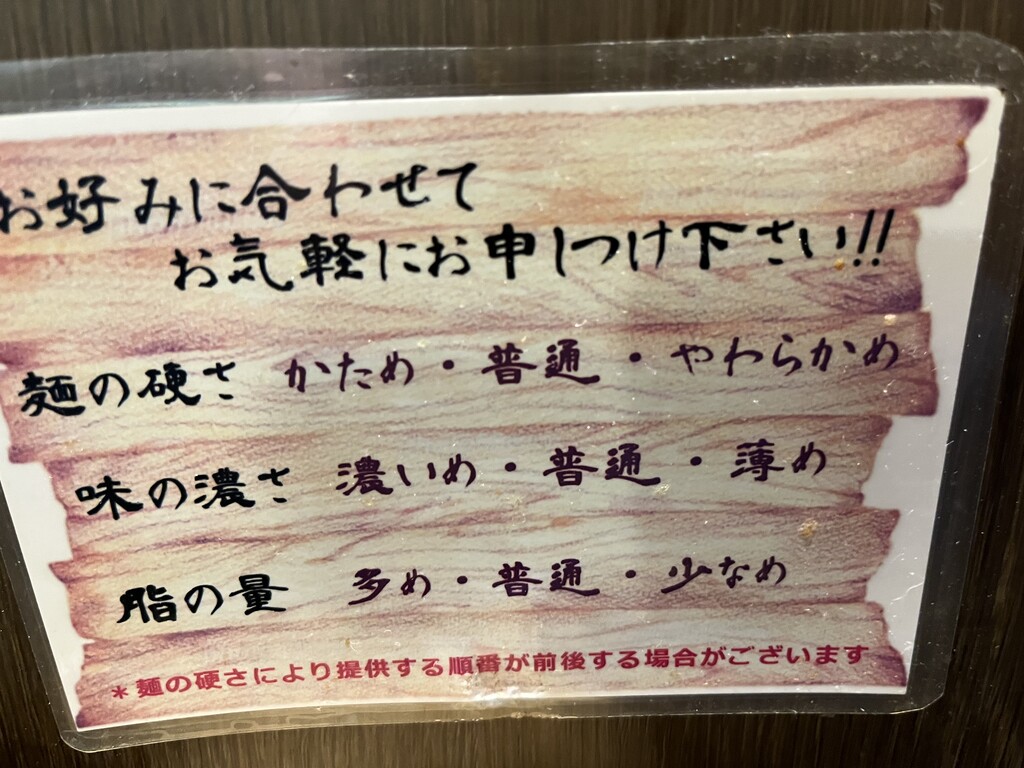 お好みに合わせて
お気軽にお申しつけ下さい!!
麺の硬さ かため・普通・やわらかめ
味の濃さ 濃いめ・普通・薄め
脂の量 多め・普通・少なめ
*麺の硬さにより提供する順番が前後する場合がございます